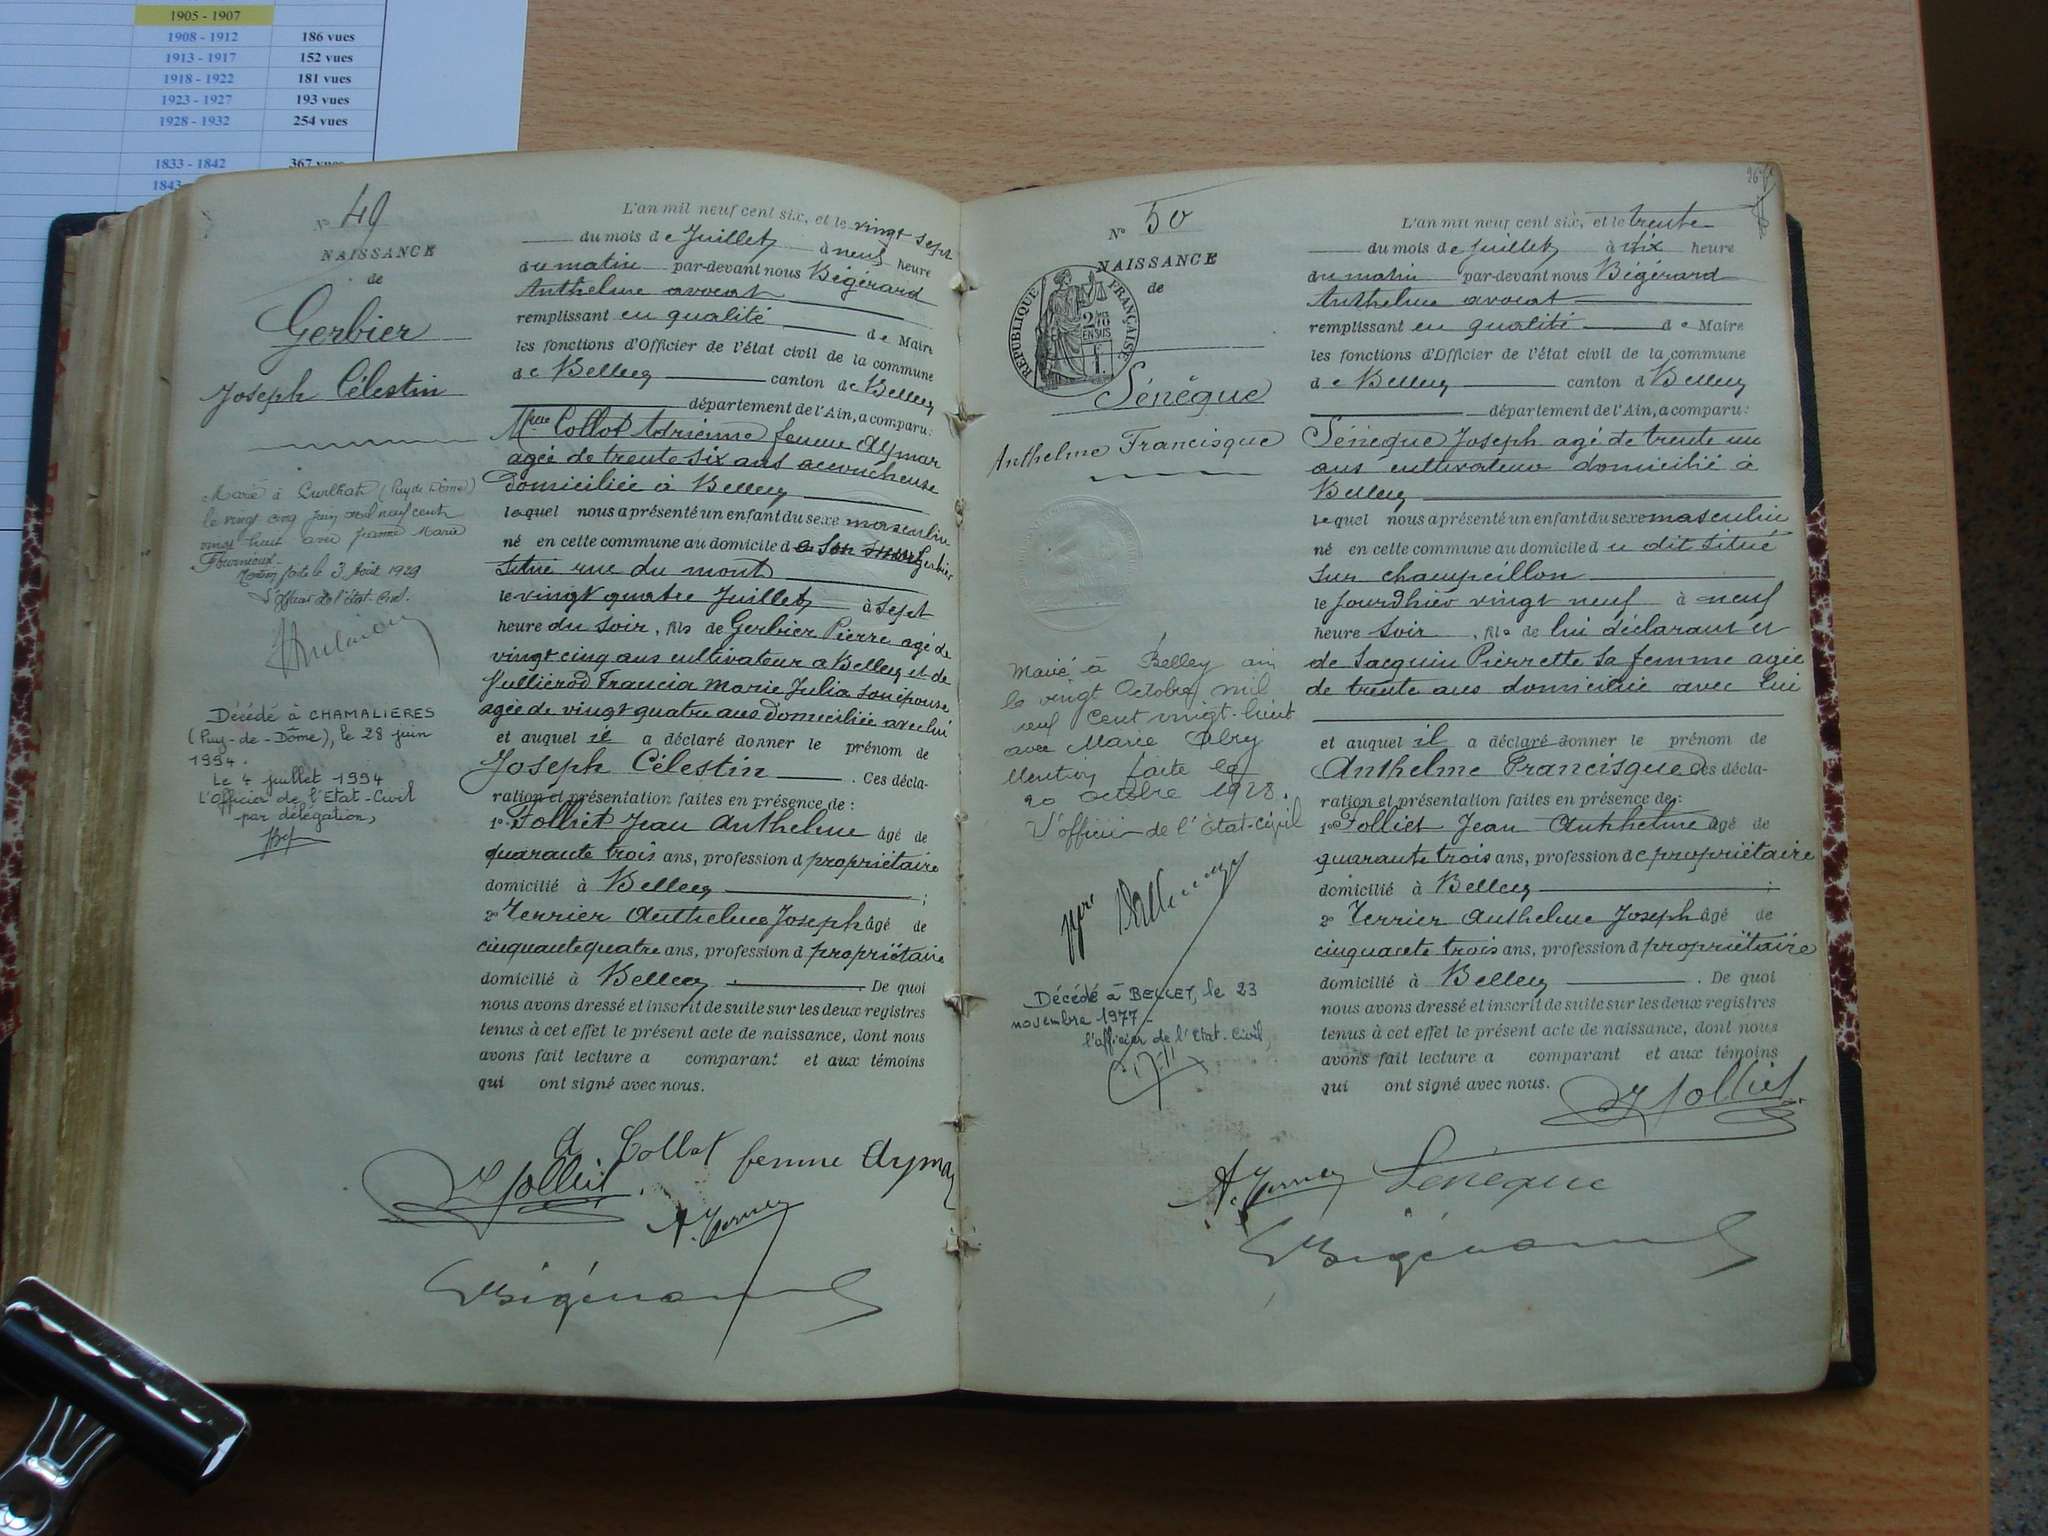 1905 - 1907
1908 - 1912 186 vues
1913 - 1917 152 vues
1918 - 1922 181 vues
1923 - 1927 193 vues
1928 - 1932 254 vues
1833 - 1842 367 vues
1843
N° 49
NAISSANCE
de
Gerbier
Joseph Célestin
Marié à (Puy de Dôme)
le vingt cinq juin mil neuf cent
vingt huit avec Jeanne Marie
Mention faite le 3 Août 1929
L'officier de l'état-Civil.
Décédé à CHAMALIERES
(Puy-de-Dôme), le 28 juin
1994.
Le 4 juillet 1994
L'Officier de l'Etat-Civil
par délégation,
L'an mil neuf cent six, et le vingt sept
du mois de Juillet à neuf heure
du matin par-devant nous Bégérard
Anthelme avocat
remplissant en qualité de Maire
les fonctions d'Officier de l'état civil de la commune
de Belley canton de Belley
département de l'Ain, a comparu:
Mme Collot Adrienne femme Aymar
agée de trente six ans accoucheuse
domiciliée à Belley
lequel nous a présenté un enfant du sexe masculin
né en cette commune au domicile d Gerbier
situé rue du mont
le vingt quatre Juillet à sept
heure du soir, fils de Gerbier Pierre agé de
vingt cinq ans cultivateur a Belley et de
Francia Marie Julia son épouse
agée de vingt quatre ans domiciliée avec lui
et auquel il a déclaré donner le prénom de
Joseph Célestin . Ces décla-
ration et présentation faites en présence de :
1° Folliet Jean Anthelme âgé de
quarante trois ans, profession d propriétaire
domicilié à Belley ;
2° Terrier Anthelme Joseph âgé de
cinquante quatre ans, profession d propriétaire
domicilié à Belley . De quoi
nous avons dressé et inscrit de suite sur les deux registres
tenus à cet effet le présent acte de naissance, dont nous
avons fait lecture a comparant et aux témoins
qui ont signé avec nous.
A Collot femme Aymar
J Folliet
A. Terrier
Bégérard
N° 50
NAISSANCE
de
RÉPUBLIQUE FRANÇAISE
Sénèque
Anthelme Francisque
Marié à Belley ain
le vingt Octobre mil
neuf cent vingt-huit
avec Marie
Mention faite le
20 octobre 1928.
L'officier de l'Etat-civil
Décédé à BELLEY, le 23
novembre 1977
l'officier de l'Etat-Civil,
L'an mil neuf cent six, et le trente
du mois de Juillet à dix heure
du matin par-devant nous Bégérard
Anthelme avocat
remplissant en qualité de Maire
les fonctions d'Officier de l'état civil de la commune
de Belley canton d Belley
département de l'Ain, a comparu:
Sénèque Joseph agé de trente un
ans cultivateur domicilié à
Belley
lequel nous a présenté un enfant du sexe masculin
né en cette commune au domicile d u dit situé
sur champeillon
le jourdhier vingt neuf à neuf
heure soir , fils de lui déclarant et
de Jacquin Pierrette sa femme agée
de trente ans domiciliée avec lui
et auquel il a déclaré donner le prénom de
Anthelme Francisque Ces décla-
ration et présentation faites en présence de :
1° Folliet Jean Anthelme âgé de
quarante trois ans, profession de propriétaire
domicilié à Belley ;
2° Terrier Anthelme Joseph âgé de
cinquante trois ans, profession d propriétaire
domicilié à Belley . De quoi
nous avons dressé et inscrit de suite sur les deux registres
tenus à cet effet le présent acte de naissance, dont nous
avons fait lecture a comparant et aux témoins
qui ont signé avec nous.
J Folliet
A. Terrier Sénèque
Bégérard